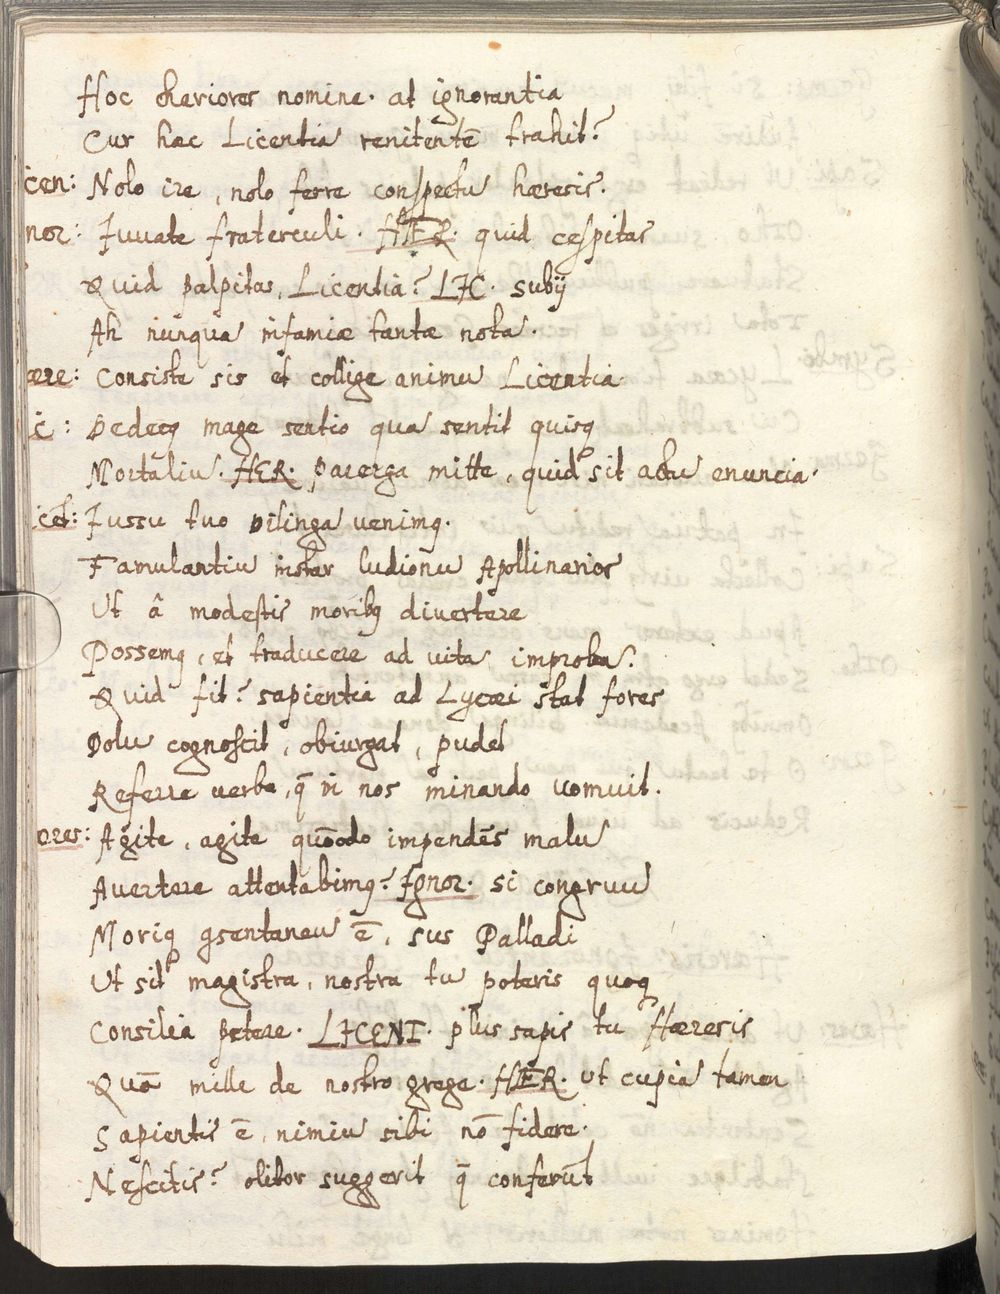 Hoc chariores nomine. at ignorantia
Cur hac Licentia renitentē trahit?
cen: Nolo ire, nolo ferre conspectu hæresis.
nor: Juuate fraterculi. HÆR. quid cespitas
Quid palpitas, Licentia? LIC. subij
Ah nunqua infamiæ tantæ nota.
ære: Consiste sis et collige animu Licentia.
ic: Dedecq mage sentio qua sentit quisq
Mortaliu. HER. parerga mitte, quid sit actu enuncia.
cet: Jussu tuo Dilinga uenimq.
Famulantiu instar ludionu Apollinarior
Ut â modestis moribq diuertere
Possemq, et traducere ad uita improba.
Quid fit? sapientia ad Lycæi stat fores
Dolu cognoscit, obiurgat, pudet
Referre uerba, q̄ in nos minando uomuit.
ores: Agite, agite quōodo impendēs malu
Auertere attentabimq? Ignor. si congruu
Moriq qsentaneu ē, sus Palladi
Ut sit magistra, nostra tu poteris quoq
Consilia petere. LICENT. plus sapis tu Hæresis
Quā mille de nostro grege. HÆR. ut cupia tamen
Sapientis ē, nimiu sibi nō fidere.
Nescitis? olitor suggerit q̄ conferūt